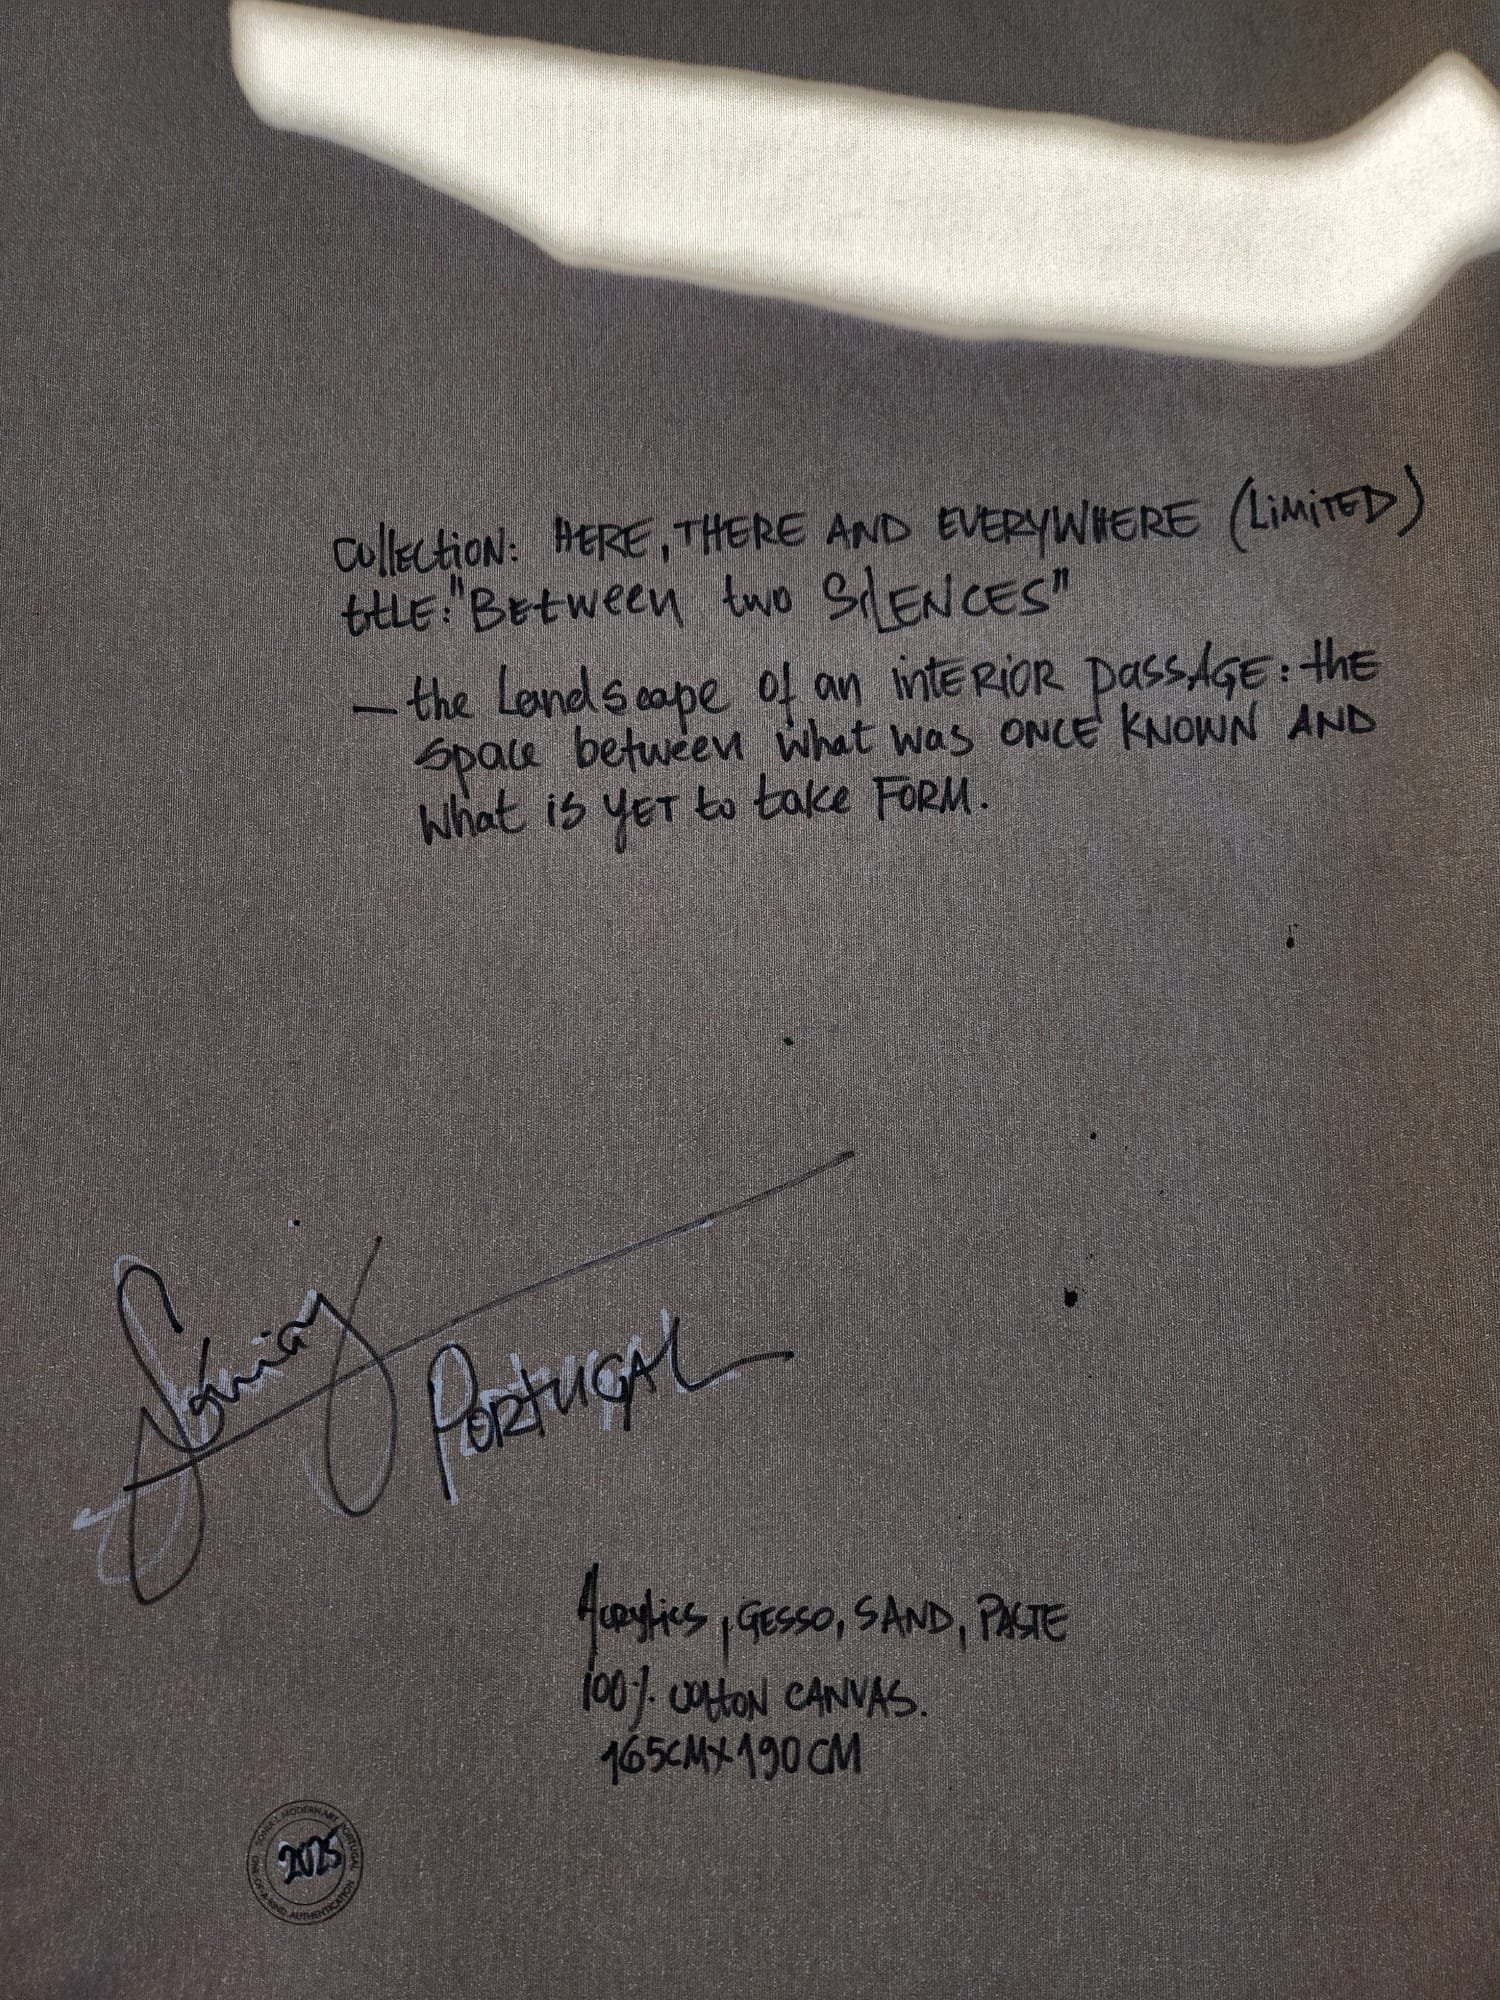 Collection: HERE, THERE AND EVERYWHERE (LiMiTED)
titLE: "Between two SiLENCES"
— the Landscape of an intERIOR passAGE: the
space between what was ONCE KNOWN AND
What is YET to take FORM.
Soniay
PORTUGAL
Acrylics, GESSO, SAND, PASTE
100% cotton CANVAS.
165CM X 190 CM
SONIAY MODERN ART PORTUGAL
2025
ONE OF A KIND AUTHENTICATION